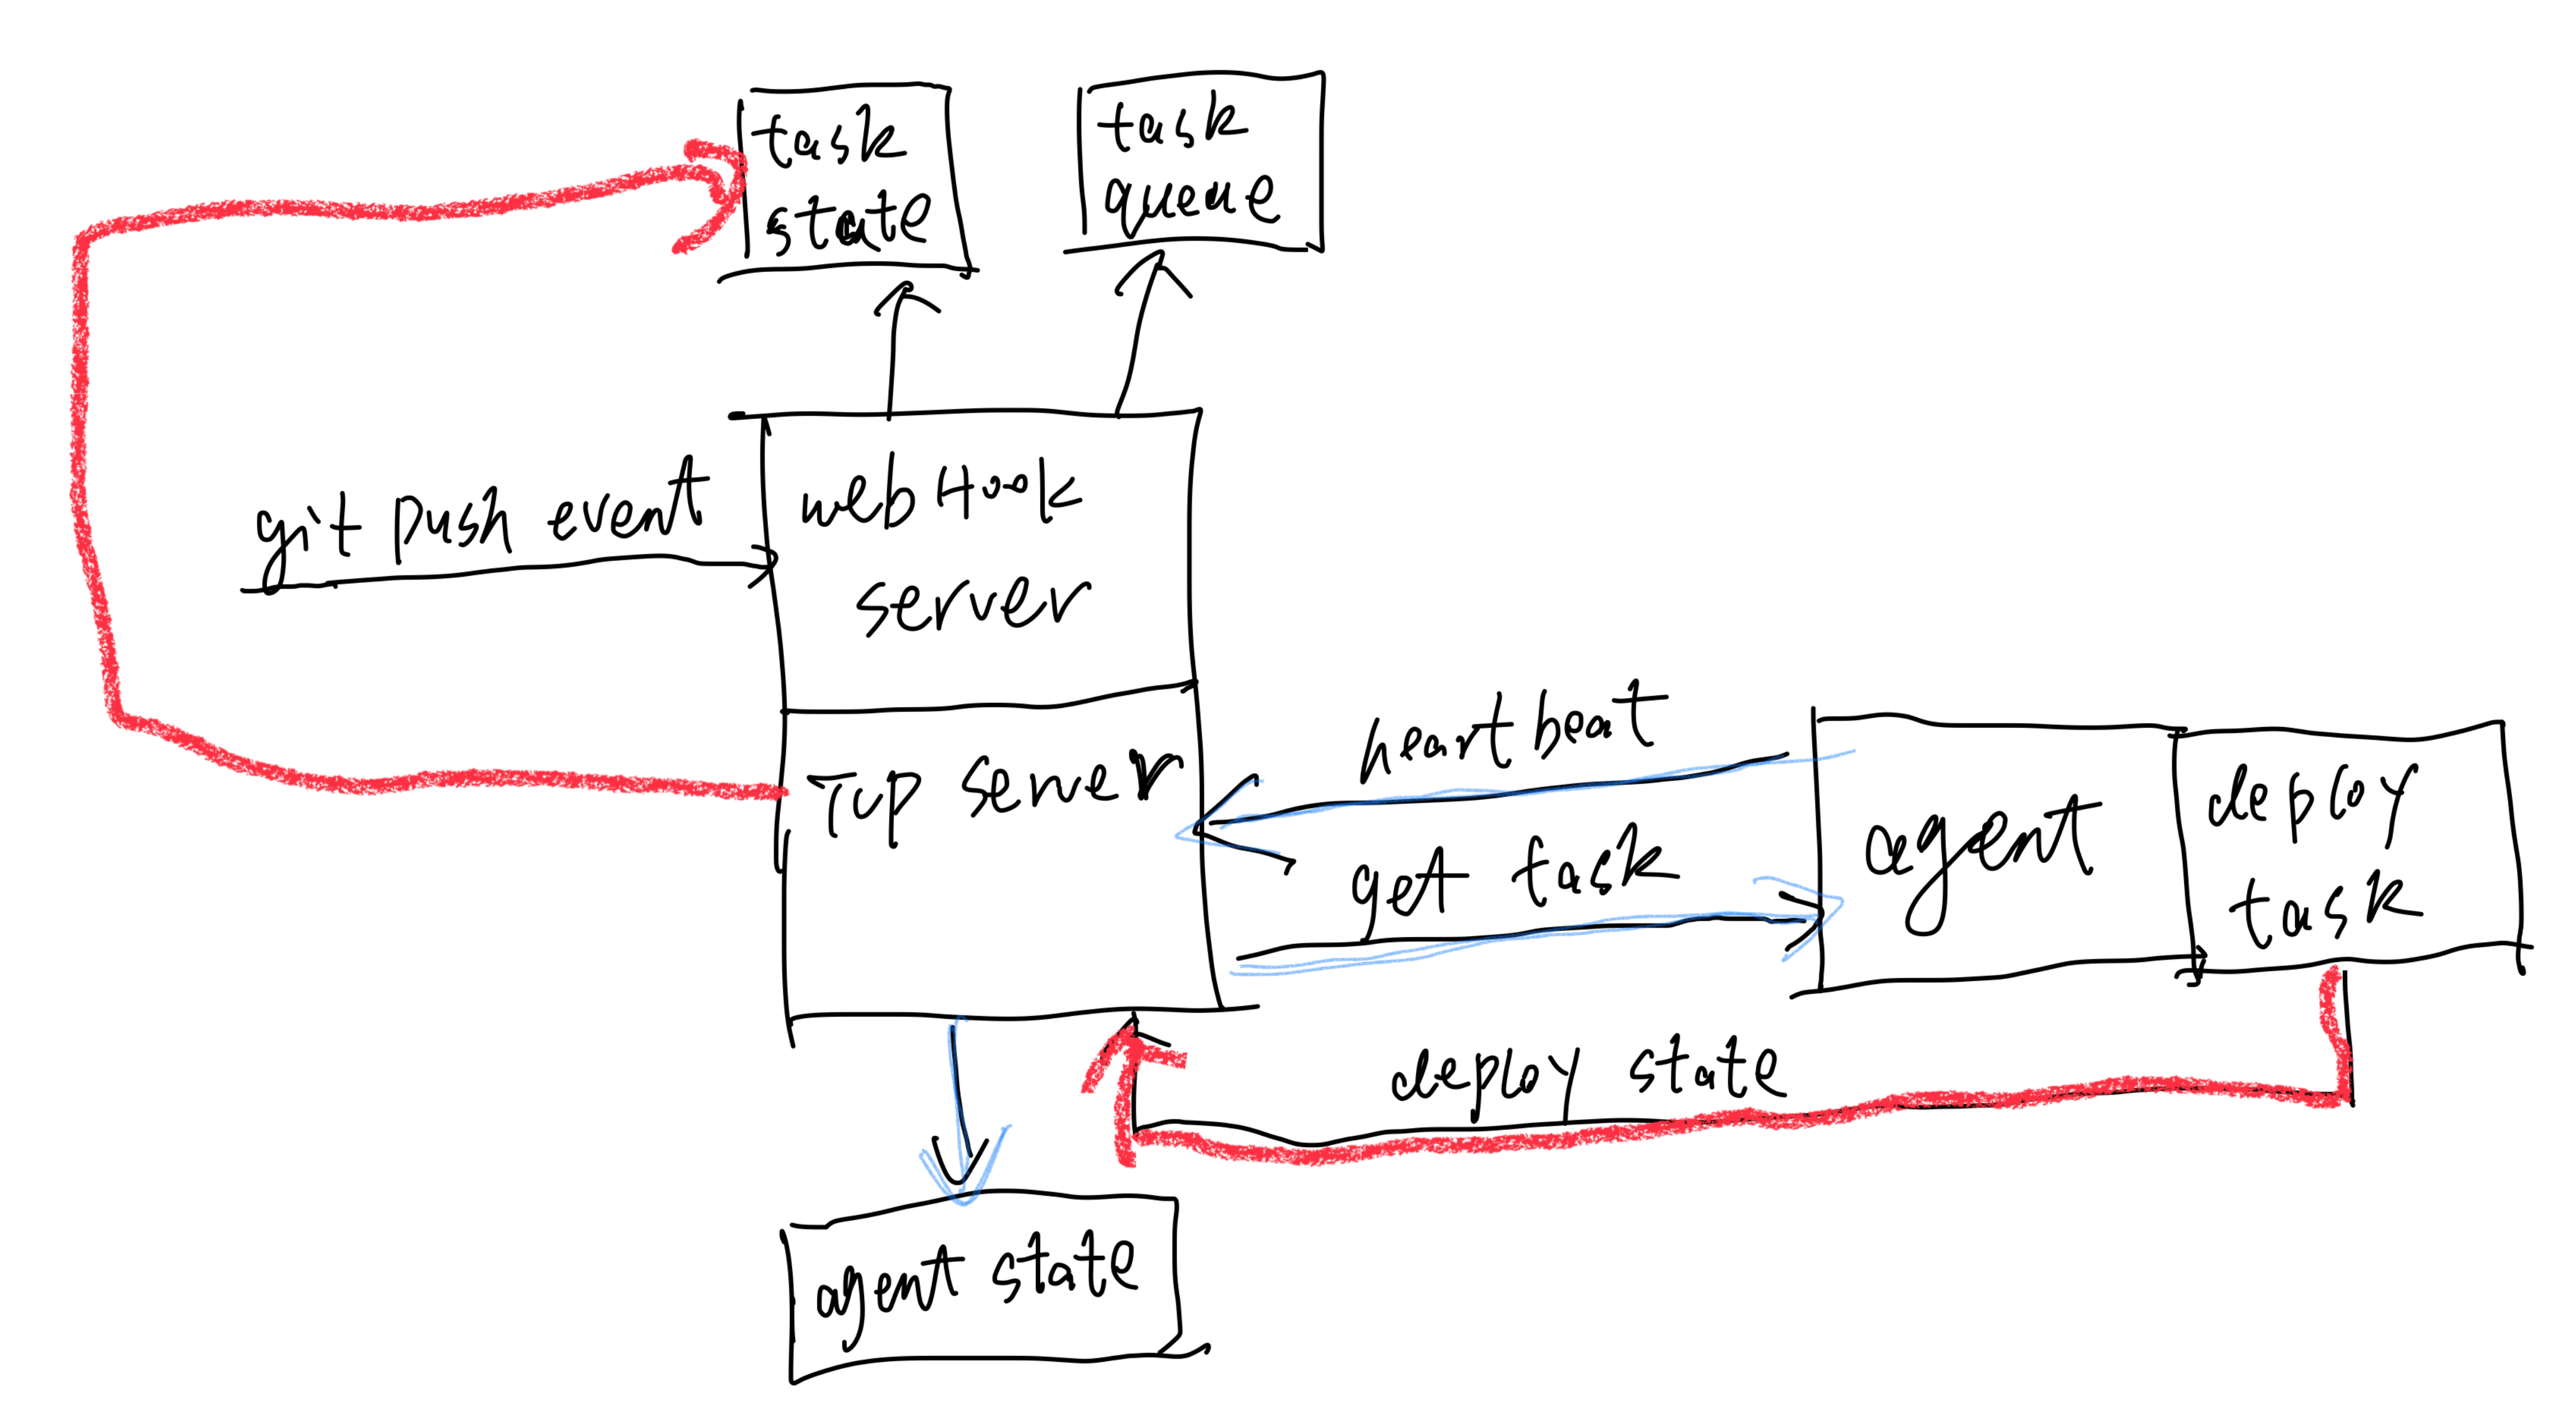 task
state
task
queue
git push event
webHook
server
Tcp server
heartbeat
get task
agent
deploy
task
deploy state
agent state